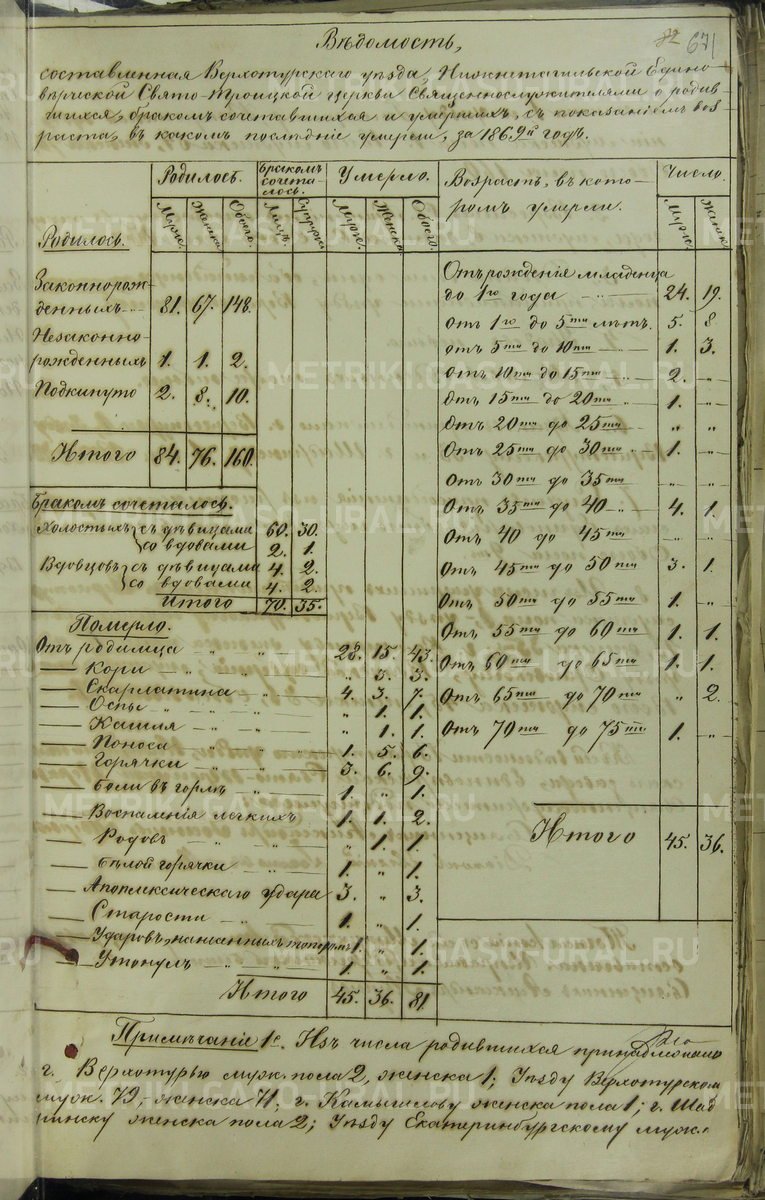 82 671
Вѣдомость,
составленная Верхотурскаго уѣзда, Нижнетагильской Едино-
вѣрческой Свято-Троицкой церкви Священнослужителями о родив-
шихся, бракомъ сочетавшихся и умершихъ, съ показаніемъ воз-
раста, въ какомъ послѣдніе умерли, за 1869й годъ.
Родилось. Бракомъ сочеталось. Умерло. Возрастъ, въ кото-
ромъ умерли. Число.
Родилось. Мужск. Женска Обоего. Лицъ. Супруж. Мужск. Женска Обоего. Мужск. Женска
Законнорож-
денныхъ 81. 67. 148.
Незаконно-
рожденныхъ 1. 1. 2.
Подкинуто 2. 8. 10.
Итого 84. 76. 160.
Бракомъ сочеталось.
Холостыхъ съ дѣвицами 60. 30.
со вдовами 2. 1.
Вдовцовъ съ дѣвицами 4. 2.
со вдовами 4. 2.
Итого 70. 35.
Померло.
Отъ родимца " " 28. 15. 43.
— Кори " " " 3. 3.
— Скарлатина " 4. 3. 7.
— Оспы " " " 1. 1.
— Кашля " " " 1. 1.
— Поноса " " 1. 5. 6.
— Горячки " " 3. 6. 9.
— Боли въ горлѣ " 1. " 1.
— Воспаленія легкихъ 1. 1. 2.
— Родовъ " " " 1. 1.
— Бѣлой горячки " 1. " 1.
— Апоплексическаго удара 3. " 3.
— Старости " 1. " 1.
— Ударовъ, нанесенныхъ топоромъ 1. " 1.
— Утонулъ " " 1. " 1.
Итого 45. 36. 81.
Отъ рожденія младенца
до 1го года 24. 19.
Отъ 1го до 5ти лѣтъ. 5. 8.
отъ 5ти до 10ти " 1. 3.
Отъ 10ти до 15ти " 2. "
Отъ 15ти до 20ти " 1. "
Отъ 20ти до 25ти " "
Отъ 25ти до 30ти " 1. "
Отъ 30ти до 35ти " "
Отъ 35ти до 40 " 4. 1.
Отъ 40 до 45ти " "
Отъ 45ти до 50ти 3. 1.
Отъ 50ти до 55ти 1. "
Отъ 55ти до 60ти 1. 1.
Отъ 60ти до 65ти 1. 1.
Отъ 65ти до 70ти " 2.
Отъ 70ти до 75ти 1. "
Итого 45. 36.
Примѣчаніе 1е. Изъ числа родившихся принадлежало
г. Верхотурью муж. пола 2, женска 1; Уѣзду Верхотурскому
муж. 79, женска 71; г. Камышлову женска пола 1; г. Шад-
ринску женска пола 2; Уѣзду Екатеринбургскому муж.